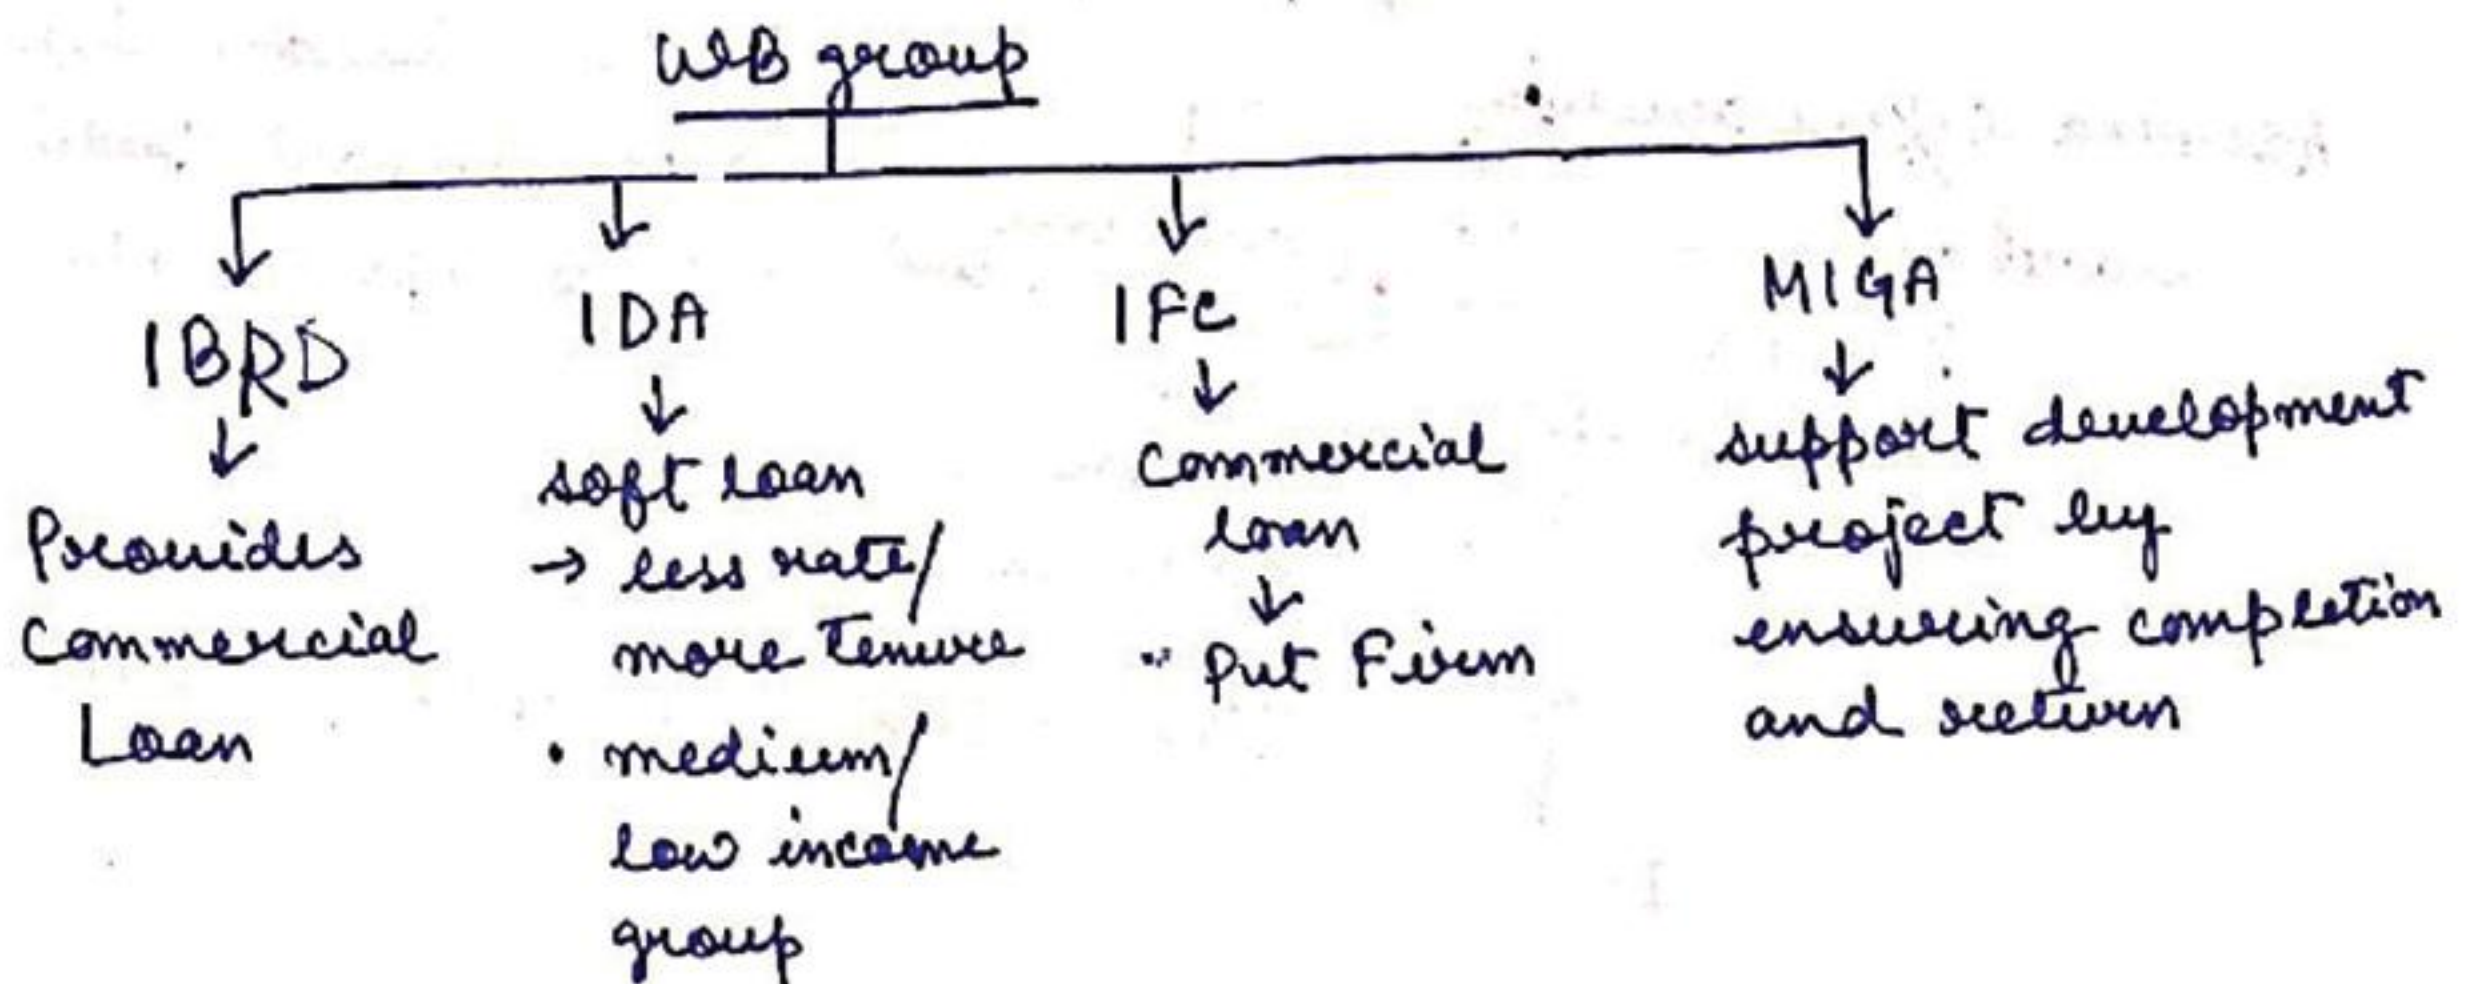 WB group
IBRD
Provides
Commercial
Loan
IDA
soft loan
→ less rate/
more tenure
• medium/
low income
group
IFC
Commercial
loan
Put Firm
MIGA
support development
project by
ensuring completion
and return